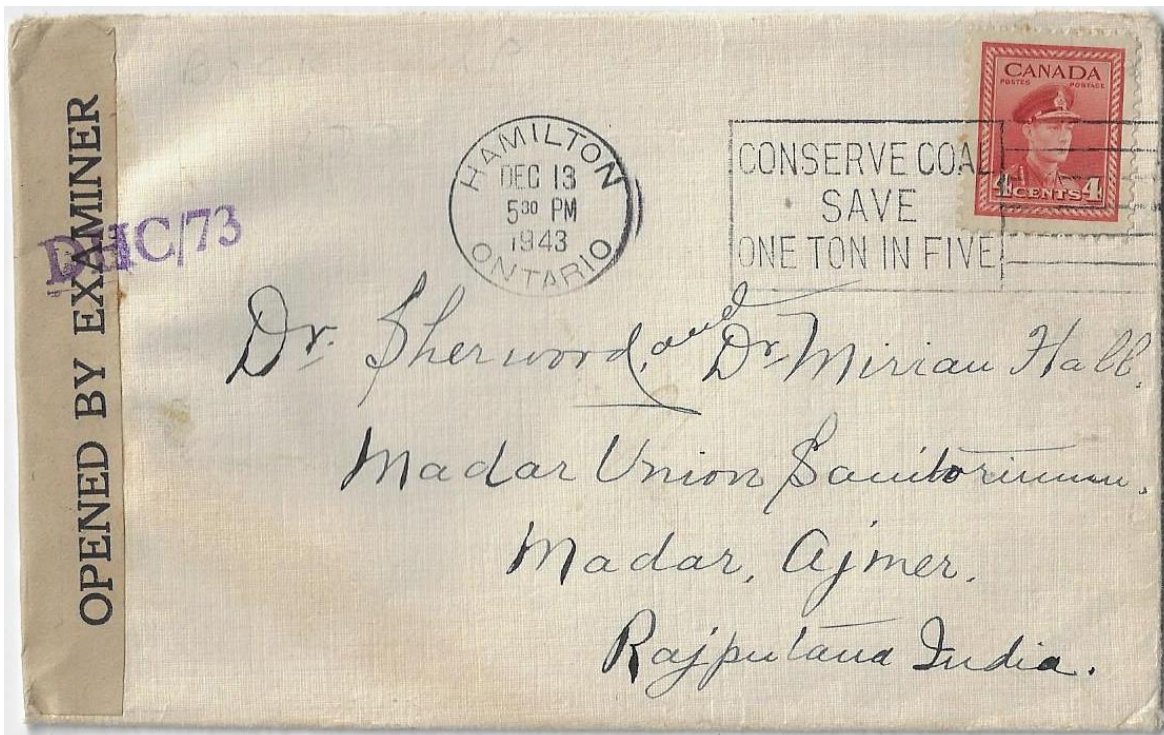 OPENED BY EXAMINER
DHC/73
HAMILTON
DEC 13
5 30 PM
1943
ONTARIO
CONSERVE COAL
SAVE
ONE TON IN FIVE
CANADA
POSTES POSTAGE
4 CENTS 4
Dr. Sherwood, and Dr. Miriam Hall.
Madar Union Sanitorium.
Madar, Ajmer.
Rajputana India.